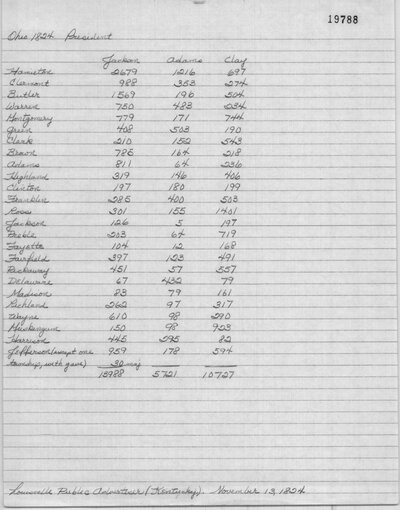 19788
Ohio 1824 President
Jackson Adams Clay
Hamilton 2679 1216 697
Clermont 988 353 274
Butler 1569 196 504
Warren 750 483 234
Montgomery 779 171 744
Green 408 503 190
Clark 210 152 543
Brown 786 164 218
Adams 811 64 236
Highland 319 146 406
Clinton 197 180 199
Franklin 285 400 503
Ross 301 155 1401
Jackson 126 5 197
Preble 203 64 719
Fayette 104 12 168
Fairfield 397 123 491
Pickaway 451 57 557
Delaware 67 432 79
Madison 83 79 161
Richland 262 97 317
Wayne 610 98 290
Muskingum 150 98 923
Harrison 445 295 82
Jefferson (except one 959 178 594
township, with gave) 30 maj
13988 5721 10727
Louisville Public Advertiser (Kentucky). November 13, 1824